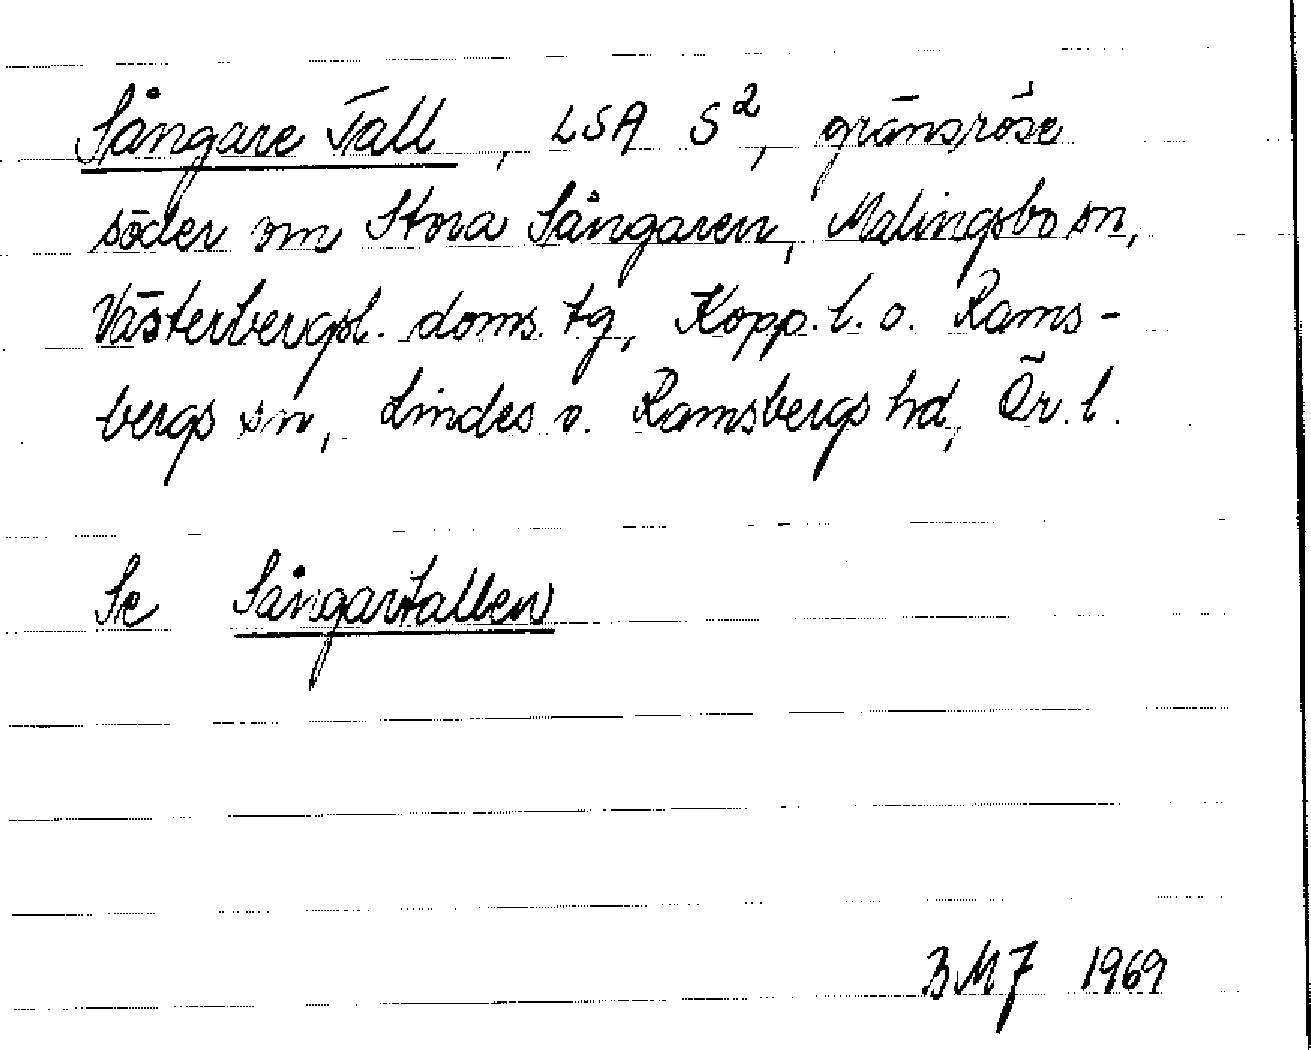 Sångare Tall, LSA S², gränsröse
söder om Stora Sångaren, Malingsbo sn,
Västerbergsl. doms. tg, Kopp. l. o. Rams-
bergs sn, Lindes o. Ramsbergs hd, Ör. l.
Se Sångartallen
BMF 1969